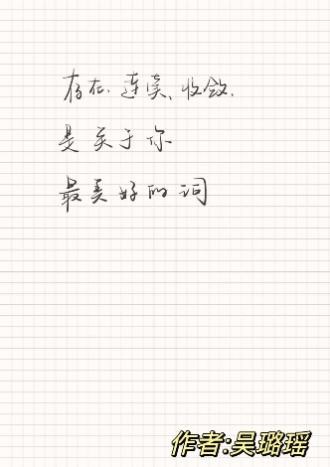 存在、连续、收敛,
是关于你
最美好的词
作者:吴璐瑶